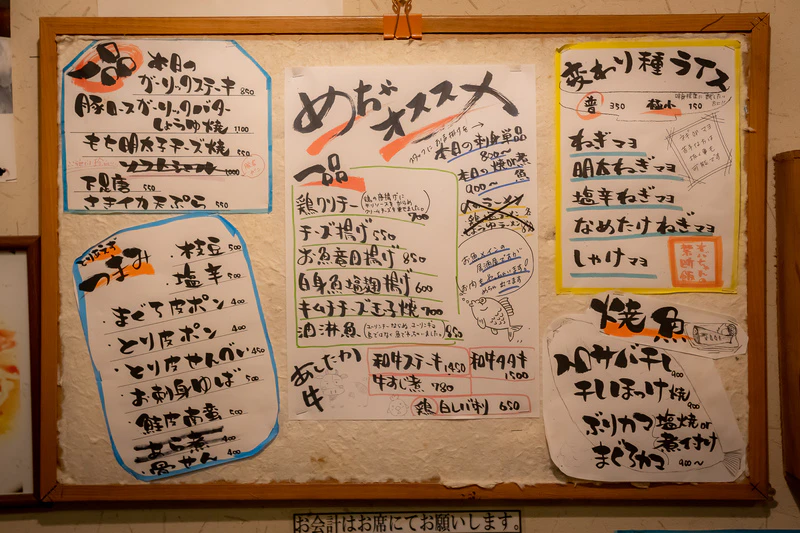 一品
本日の
ガーリックステーキ 850
豚ロースガーリックバター
しょうゆ焼 1100
もち明太子チーズ焼 550
ソフトシェル 1000
下足唐 550
さきイカ天ぷら 550
とりあえず
つまみ
枝豆 500
塩辛 500
まぐろ皮ポン 400
とり皮ポン 400
とり皮せんべい 450
お刺身ゆば 500
鮭皮南蛮 500
あら煮 400
骨せん 400
めちゃ
オススメ
本日の刺身単品
800~
本日の焼or煮
900~ 魚
一品
鶏クリチー 700
チーズ揚げ 550
お魚意日揚げ 850
白身魚塩麹揚げ 600
キムチチーズ玉子焼 700
油淋魚 850
お魚メインの
居酒屋ですが
お肉もめっちゃいます!
あしたか
牛
和牛ステーキ 1450
和牛タタキ
1500
牛すじ煮 780
鶏白レバ刺 650
変わり種ライス
普 350 極小 150
ねぎマヨ
明太ねぎマヨ
塩辛ねぎマヨ
なめたけねぎマヨ
しゃけマヨ
焼魚
トロサバ干し 900
干しほっけ焼 900
ぶりカマ 塩焼or
煮付け
まぐろカマ 900~
お会計はお席にてお願いします。